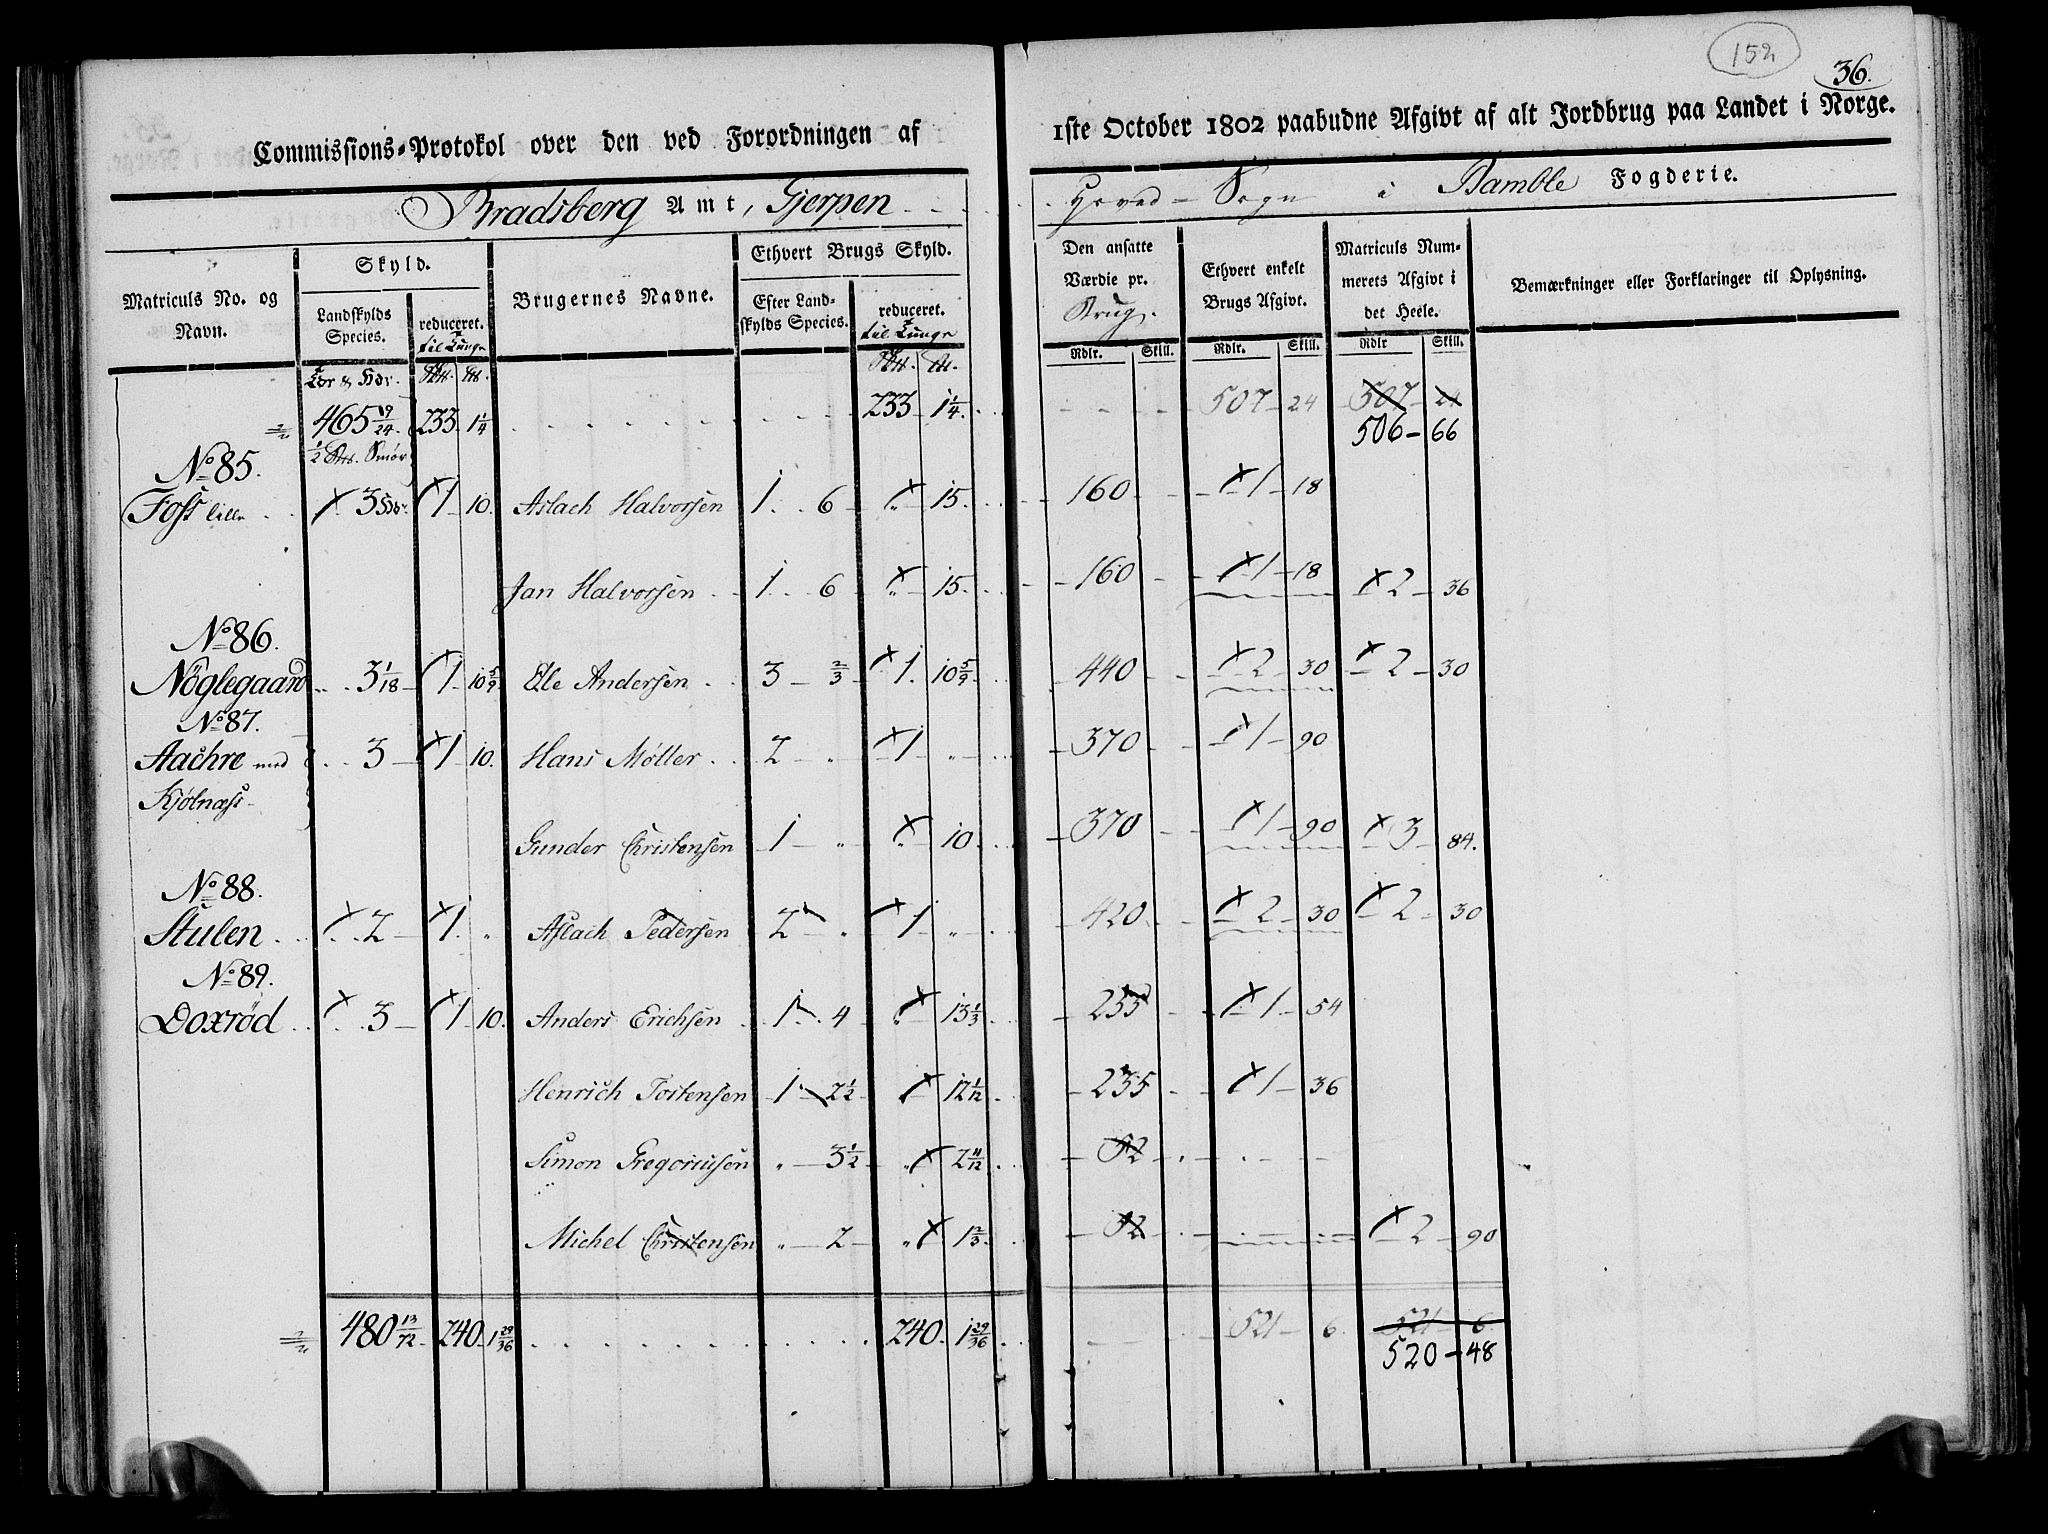 152
36.
Commissions-Protokol over den ved Forordningen af 1ste October 1802 paabudne Afgivt af alt Jordbrug paa Landet i Norge.
Bradsberg Amt, Gjerpen Hoved-Sogn i Bamble Fogderie.
Matriculs No. og Navn.
Skyld.
Landskylds Species.
reduceret. til Tunge
Brugernes Navne.
Ethvert Brugs Skyld.
Efter Landskylds Species.
reduceret. til Tunge
Den ansatte Værdie pr. Brug.
Ethvert enkelt Brugs Afgivt.
Matriculs Nummerets Afgivt i det Heele.
Bemærkninger eller Forklaringer til Oplysning.
Rdlr. Skill. Rdlr. Skill. Rdlr Skill.
465 9/24. 233 1 1/4 233 1 1/4. 507 24 507 24
506 66
1/2 Smør
No 85.
Foss lille 3 1 10. Aslach Halvorsen 1 6 " 15 160 1 18
Jan Halvorsen 1 6 " 15 160 1 18 2 36
No 86.
Nöglegaard 3 1/18 1 10 5/9 Ole Andersen 3 2/3 1. 10 5/9 440 2 30 2 30
No 87.
Aachre med 3 1 10. Hans Møller 2 " 1 " 370 1 90
Kjölnæss
Gunder Christensen 1 " " 10 370 1 90 3 84.
No 88.
Stulen 2 1. " Aslach Pedersen 2 " 1 " 420 2 30 2 30
No 89.
Doxröd 3 1 10. Anders Erichsen 1 4 " 13 1/3 255 1 54
Henrich Tostensen 1 2 1/2 12 1/12 235 1 36
Simon Gregoriusen " 3 1/2 " 2 11/12 52
Michel Christensen " 2 " 1 2/3 52 2 90
480 13/72 240 1 29/36 240. 1 29/36 521 6. 521 6.
520 48